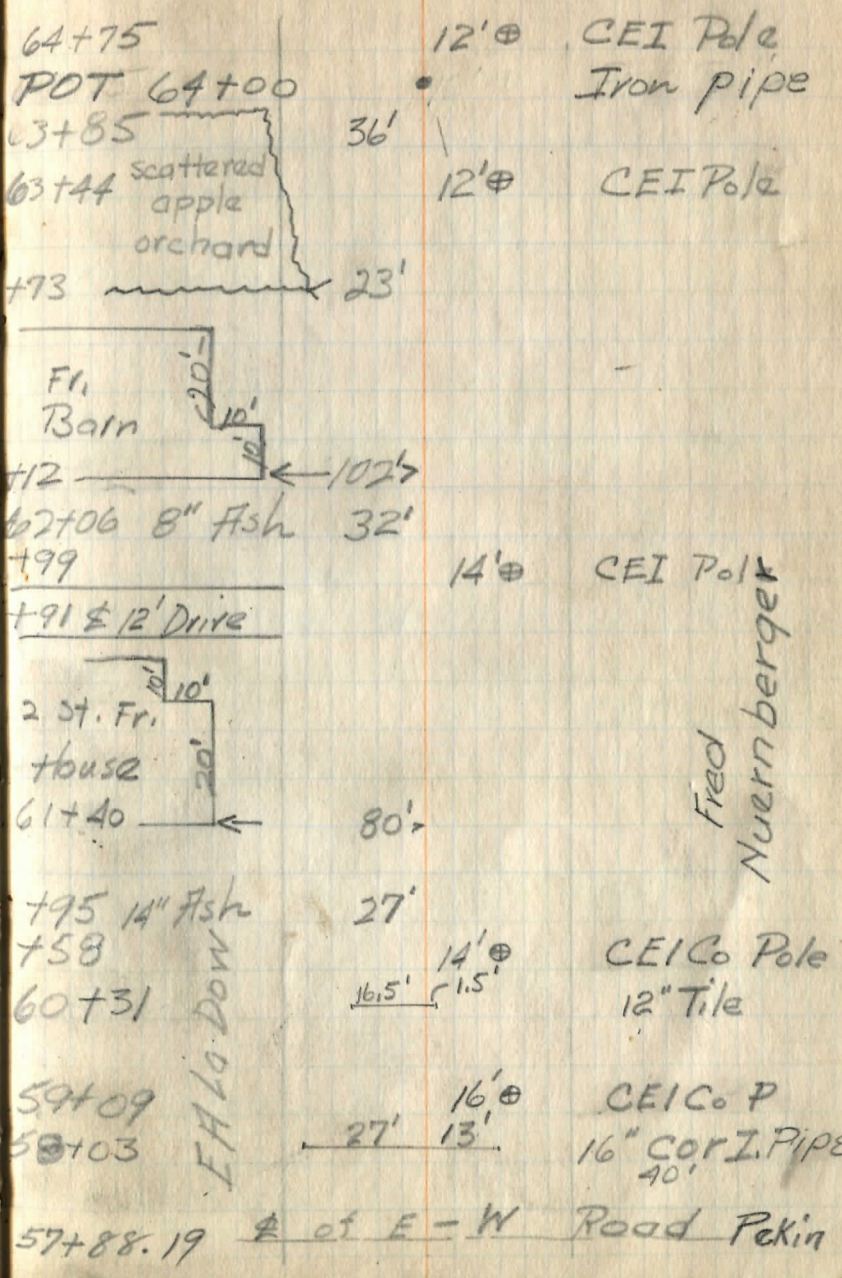 64+75 12'⊕ CEI Pole
POT 64+00 Iron pipe
63+85 36'
63+44 scattered 12'⊕ CEI Pole
apple
orchard
+73 23'
20'
Fr.
10'
Barn
10'
+12 102'
62+06 8" Ash 32'
+99 14'⊕ CEI Pole
+91 ℄ 12' Drive
10' 10'
2 St. Fr.
House 20'
61+40 80'
Fred
Nuernberger
+95 14" Ash 27'
+58 14'⊕ CEI Co Pole
60+31 16.5' 1.5' 12" Tile
59+09 16'⊕ CEI Co P
58+03 27' 13' 16" Cor I. Pipe
40'
E A La Dow
57+88.19 ℄ of E-W Road Pekin